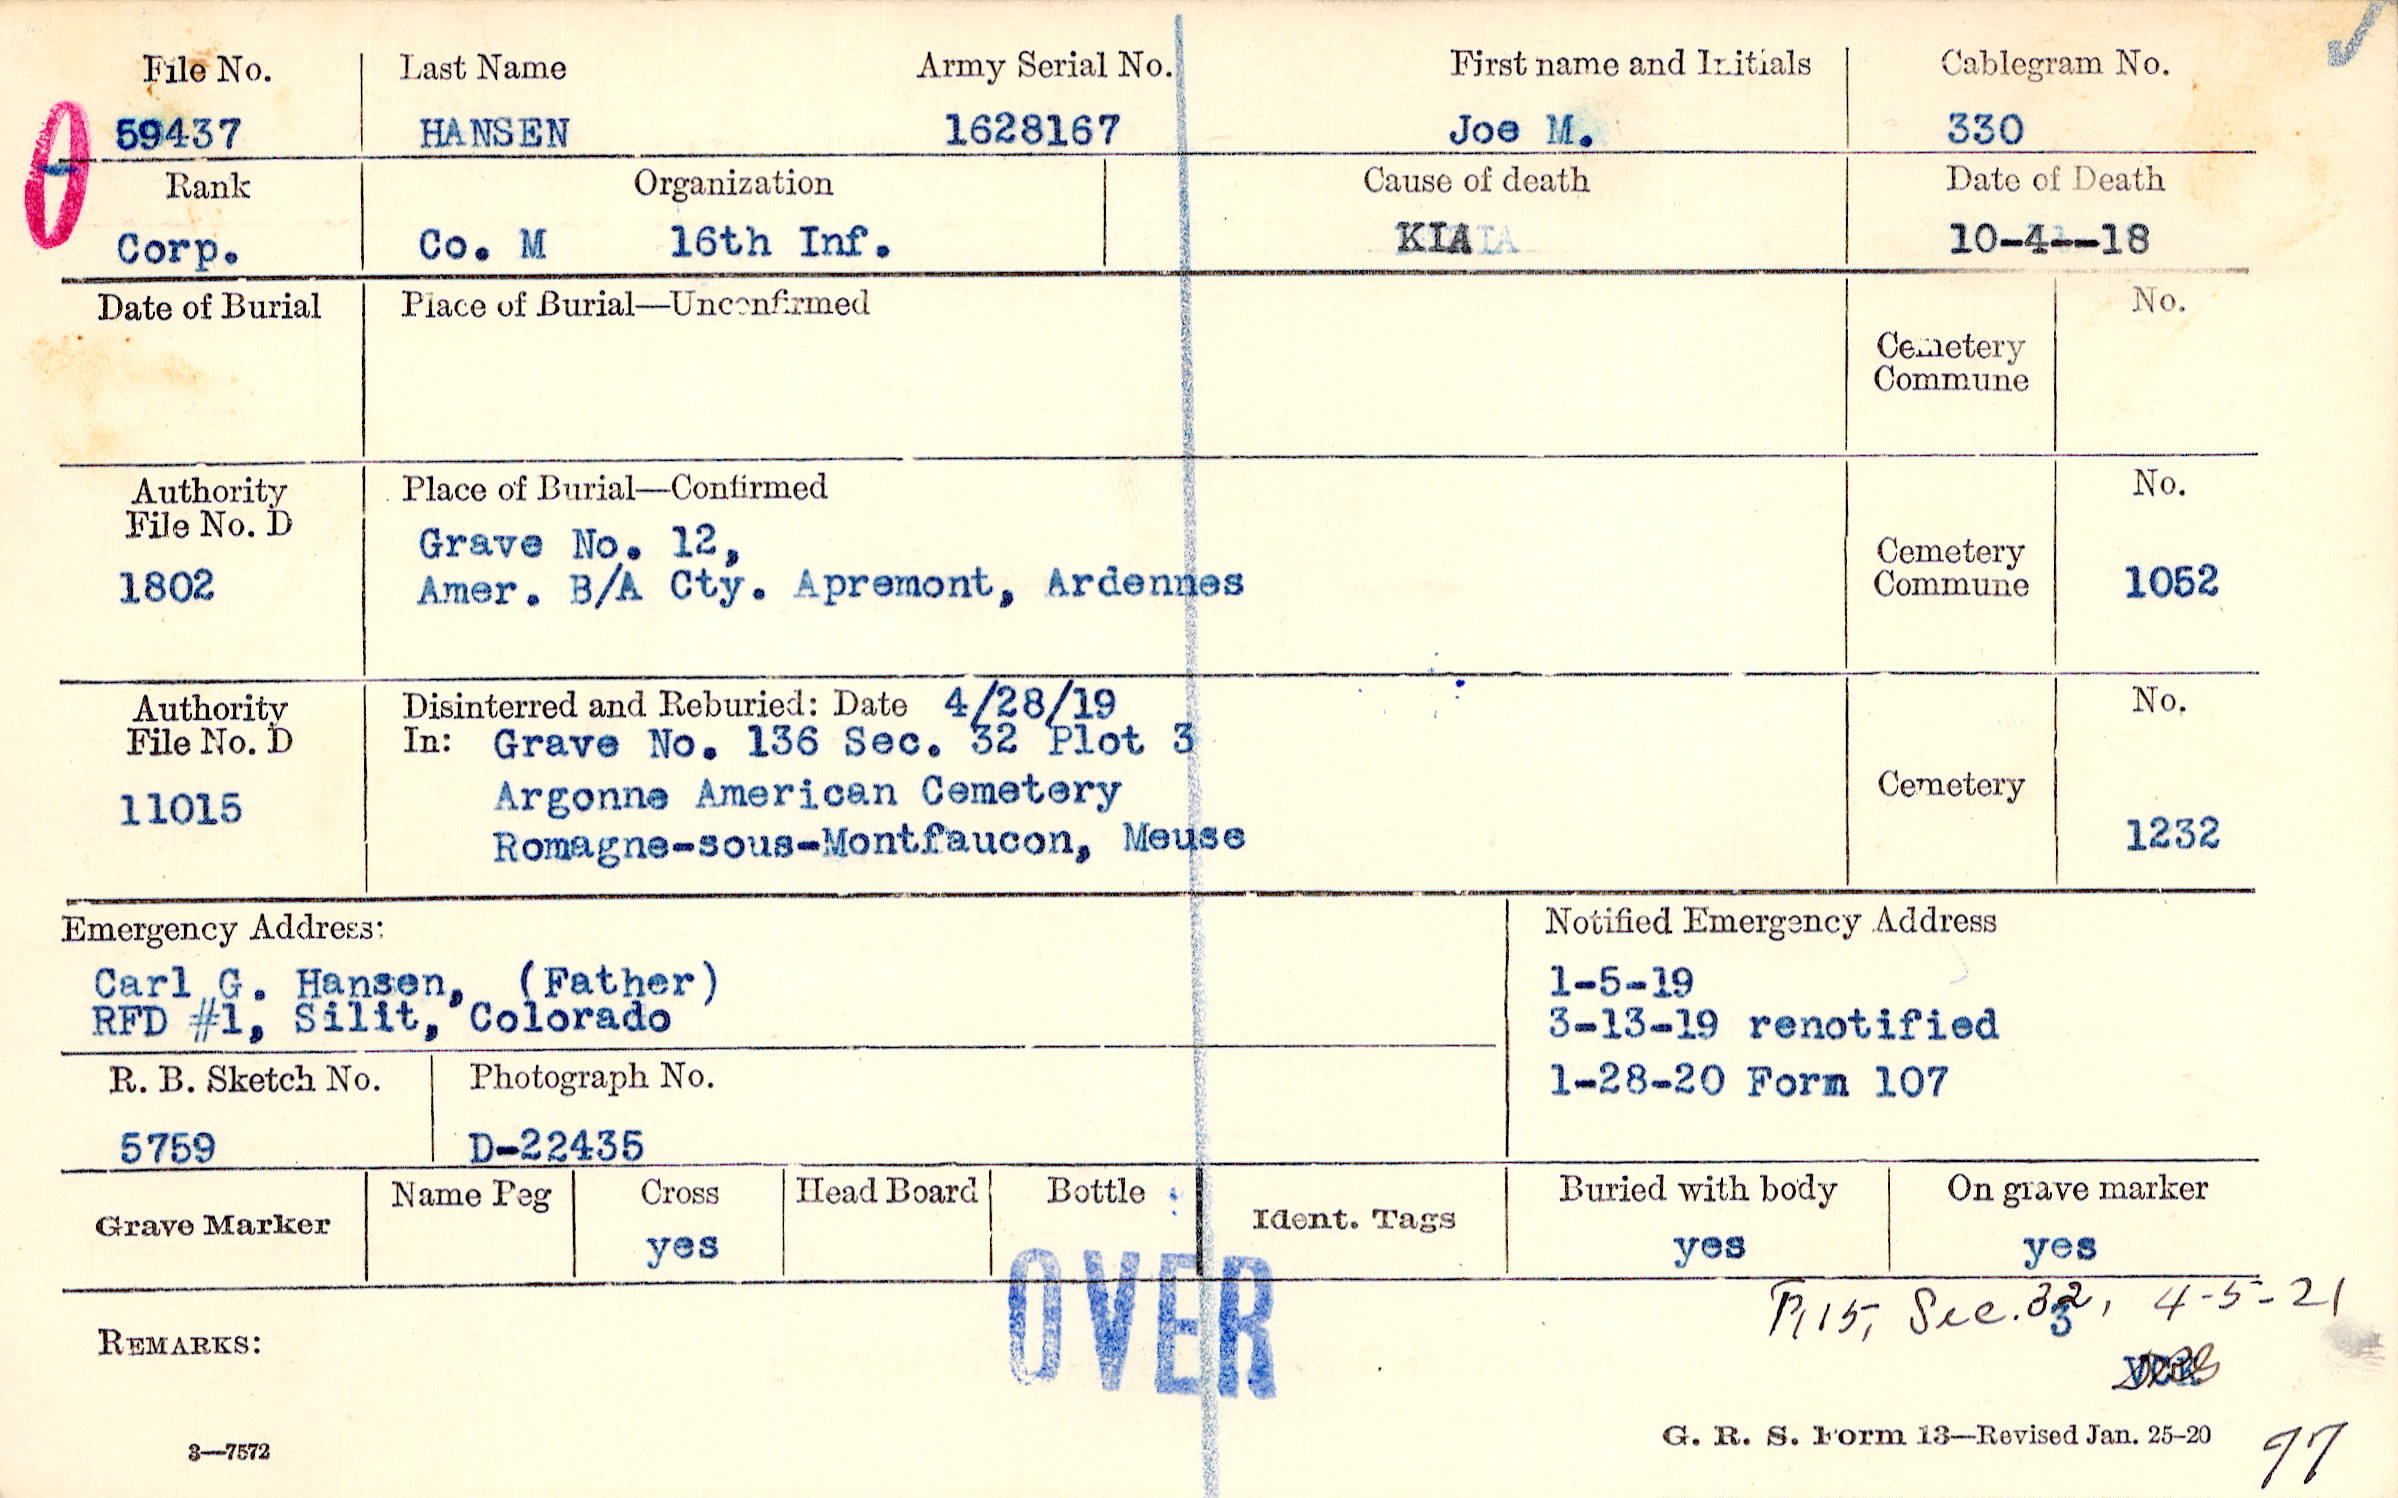 File No. Last Name Army Serial No. First name and Initials Cablegram No.
59437 HANSEN 1628167 Joe M. 330
Rank Organization Cause of death Date of Death
Corp. Co. M 16th Inf. KIA 10-4--18
Date of Burial Place of Burial—Unconfirmed No.
Cemetery
Commune
Authority Place of Burial—Confirmed No.
File No. D
Grave No. 12,
1802 Amer. B/A Cty. Apremont, Ardennes Cemetery
Commune 1052
Authority Disinterred and Reburied: Date 4/28/19 No.
File No. D In: Grave No. 136 Sec. 32 Plot 3
11015 Argonne American Cemetery Cemetery
Romagne-sous-Montfaucon, Meuse 1232
Emergency Address: Notified Emergency Address
Carl G. Hansen, (Father) 1-5-19
RFD #1, Silit, Colorado 3-13-19 renotified
R. B. Sketch No. Photograph No. 1-28-20 Form 107
5759 D-22435
Grave Marker Name Peg Cross Head Board Bottle Ident. Tags Buried with body On grave marker
yes yes yes
OVER
Sec. 32, 4-5-21
REMARKS:
3—7572 G. R. S. Form 13—Revised Jan. 25-20 97